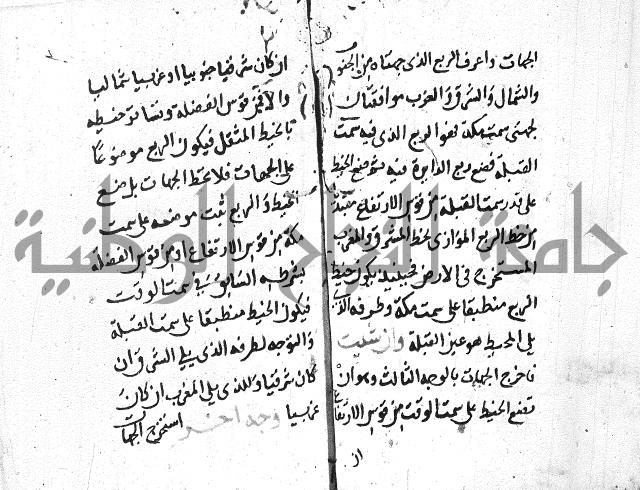 الجهات واعرف الربع الذى جهتاه من الجنوب
والشمال والشرق والغرب موافقتان
لجهتى سمت مكة فهو الربع الذى فيه سمت
القبلة فضع ربع الدايرة فيه وضع الخيط
على قدر سمت القبلة من قوس الارتفاع
من خط الربع الموازى لخط المشرق والمغرب
المستخرج فى الارض فحينئذ يكون خيط
الربع منطبقا على سمت مكة وطرفه الذى
يلى المحيط هو عين القبلة وان شئت
فاخرج الجهات بالوجه الثالث وهو ان
تضع الخيط على سمت الوقت من قوس الارتفاع
ان
ان كان شرقيا جنوبيا او غربيا شماليا
والا فمن قوس الفضلة وتساتر خيطه
بالخيط المثقل فيكون الربع موضوعا
على الجهات فلا تخط الجهات بل ضع
الخيط والربع ثبت موضعه على سمت
مكة من قوس الارتفاع او من قوس الفضلة
بشرطه السابق فى سمت الوقت
فيكون الخيط منطبقا على سمت القبلة
والتوجه لطرفه الذى يلى الشرق ان
كان شرقيا وللذى يلى المغرب ان كان
غربيا وجه اخر استخرج الجهات
جامعة النجاح الوطنية